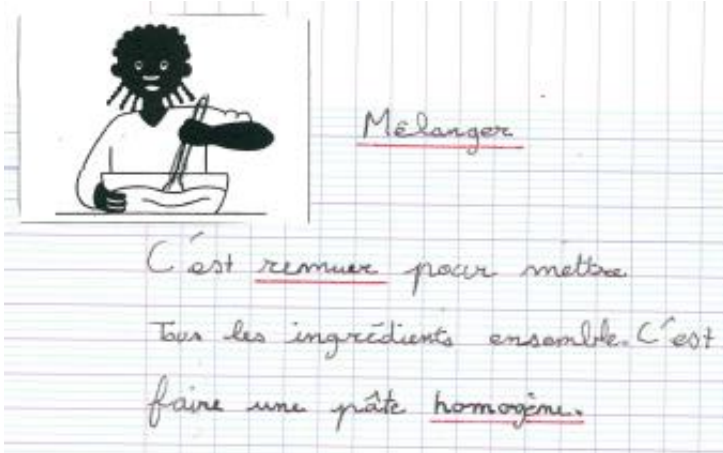 Mélanger
C'est remuer pour mettre
Tous les ingrédients ensemble. C'est
faire une pâte homogène.